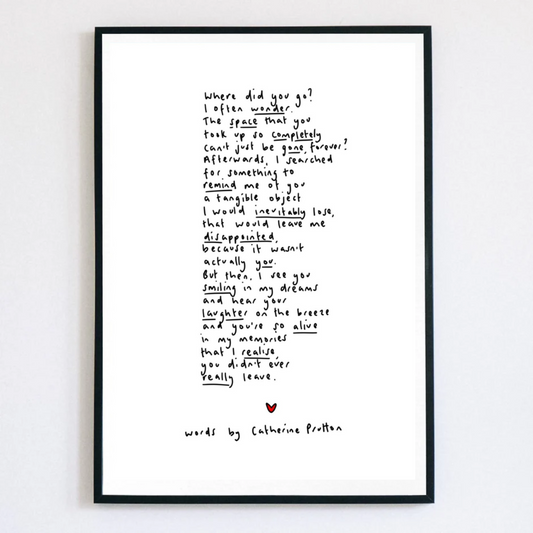 Where did you go?
I often wonder.
The space that you
took up so completely
can't just be gone, forever?
Afterwards, I searched
for something to
remind me of you
a tangible object
I would inevitably lose,
that would leave me
disappointed,
because it wasn't
actually you.
But then, I see you
smiling in my dreams
and hear your
laughter on the breeze
and you're so alive
in my memories
that I realise,
you didn't ever
really leave.
words by Catherine Prutton